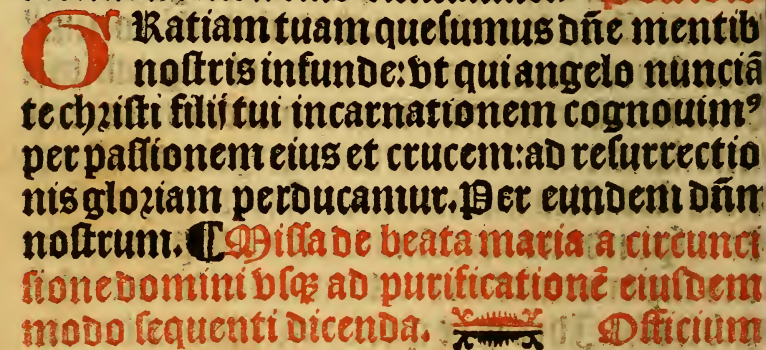 GRatiam tuam quesumus dñe mentib
nostris infunde: vt qui angelo nunciã
te christi filij tui incarnationem cognouimꝰ
per passionem eius et crucem: ad resurrectio
nis gloriam perducamur. Per eundem dñm
nostrum. ¶ Missa de beata maria a circunci
sione domini vsqꝫ ad purificationẽ eiusdem
modo sequenti dicenda. Officium